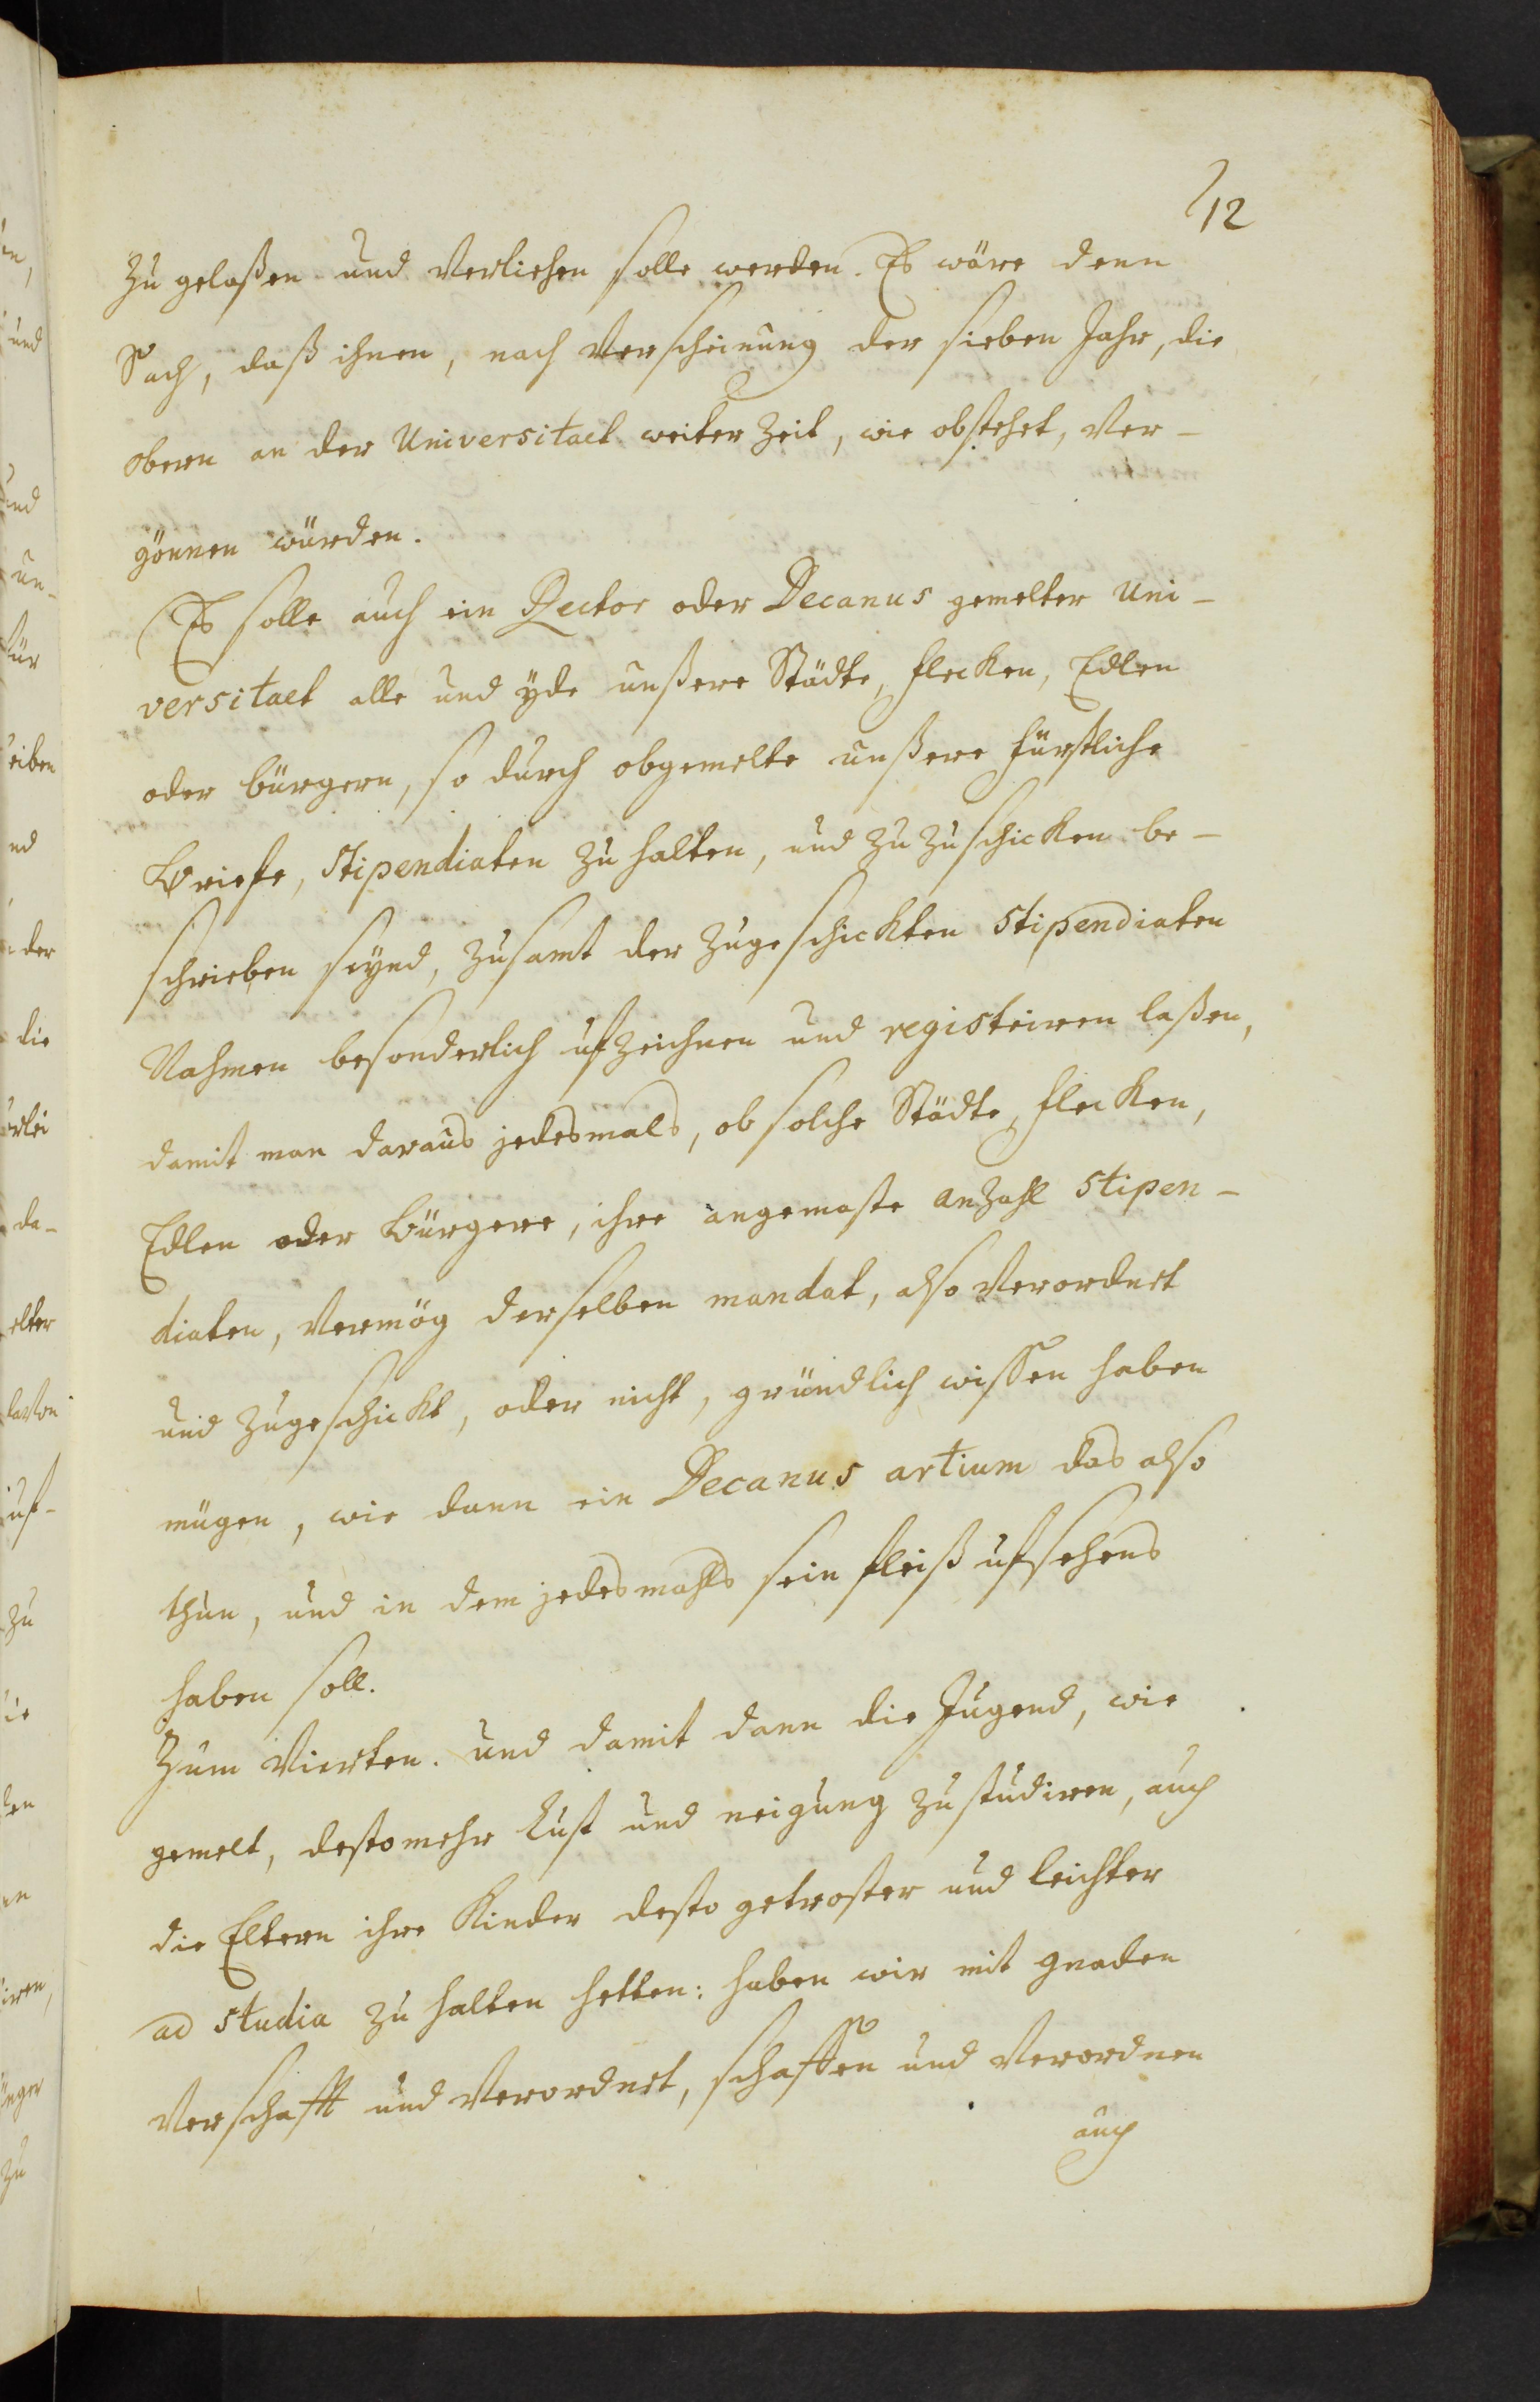 12
zu gelaßen und verliehen solle werden. Es wäre denn
Sach, daß ihnen, nach Verscheinung der sieben Jahr, die
obern an der Universitaet weiter Zeit, wie obstehet, ver-
gönnen würden.
Es solle auch ein Rector oder Decanus gemelter Uni-
versitaet alle und yde unßere Städte, flecken, Edlen
oder bürgern, so durch obgemelte unßere fürstliche
Briefe, Stipendiaten zu halten, und zu zuschicken be-
schrieben seynd, zusamt der zugeschickten Stipendiaten
Nahmen besonderlich ufzeichnen und registriren laßen,
damit man daraus jedesmals, ob solche Städte, flecken,
Edlen oder Bürgere, ihre angemaste anzahl Stipen-
diaten, vermög derselben mandat, also verordnet
und zugeschickt, oder nicht, gründlich wissen haben
mügen, wie dann ein Decanus artium das also
thun, und in dem jedesmahls sein fleiß ufsehens
haben soll.
Zum Vierten. und damit dann die Jugend, wie
gemelt, destomehr Lust und neigung zu studiren, auch
die Eltern ihre Kinder desto getroster und leichter
ad studia zu halten hetten: haben wir mit gnaden
verschafft und verordnet, schaffen und verordnen
auch